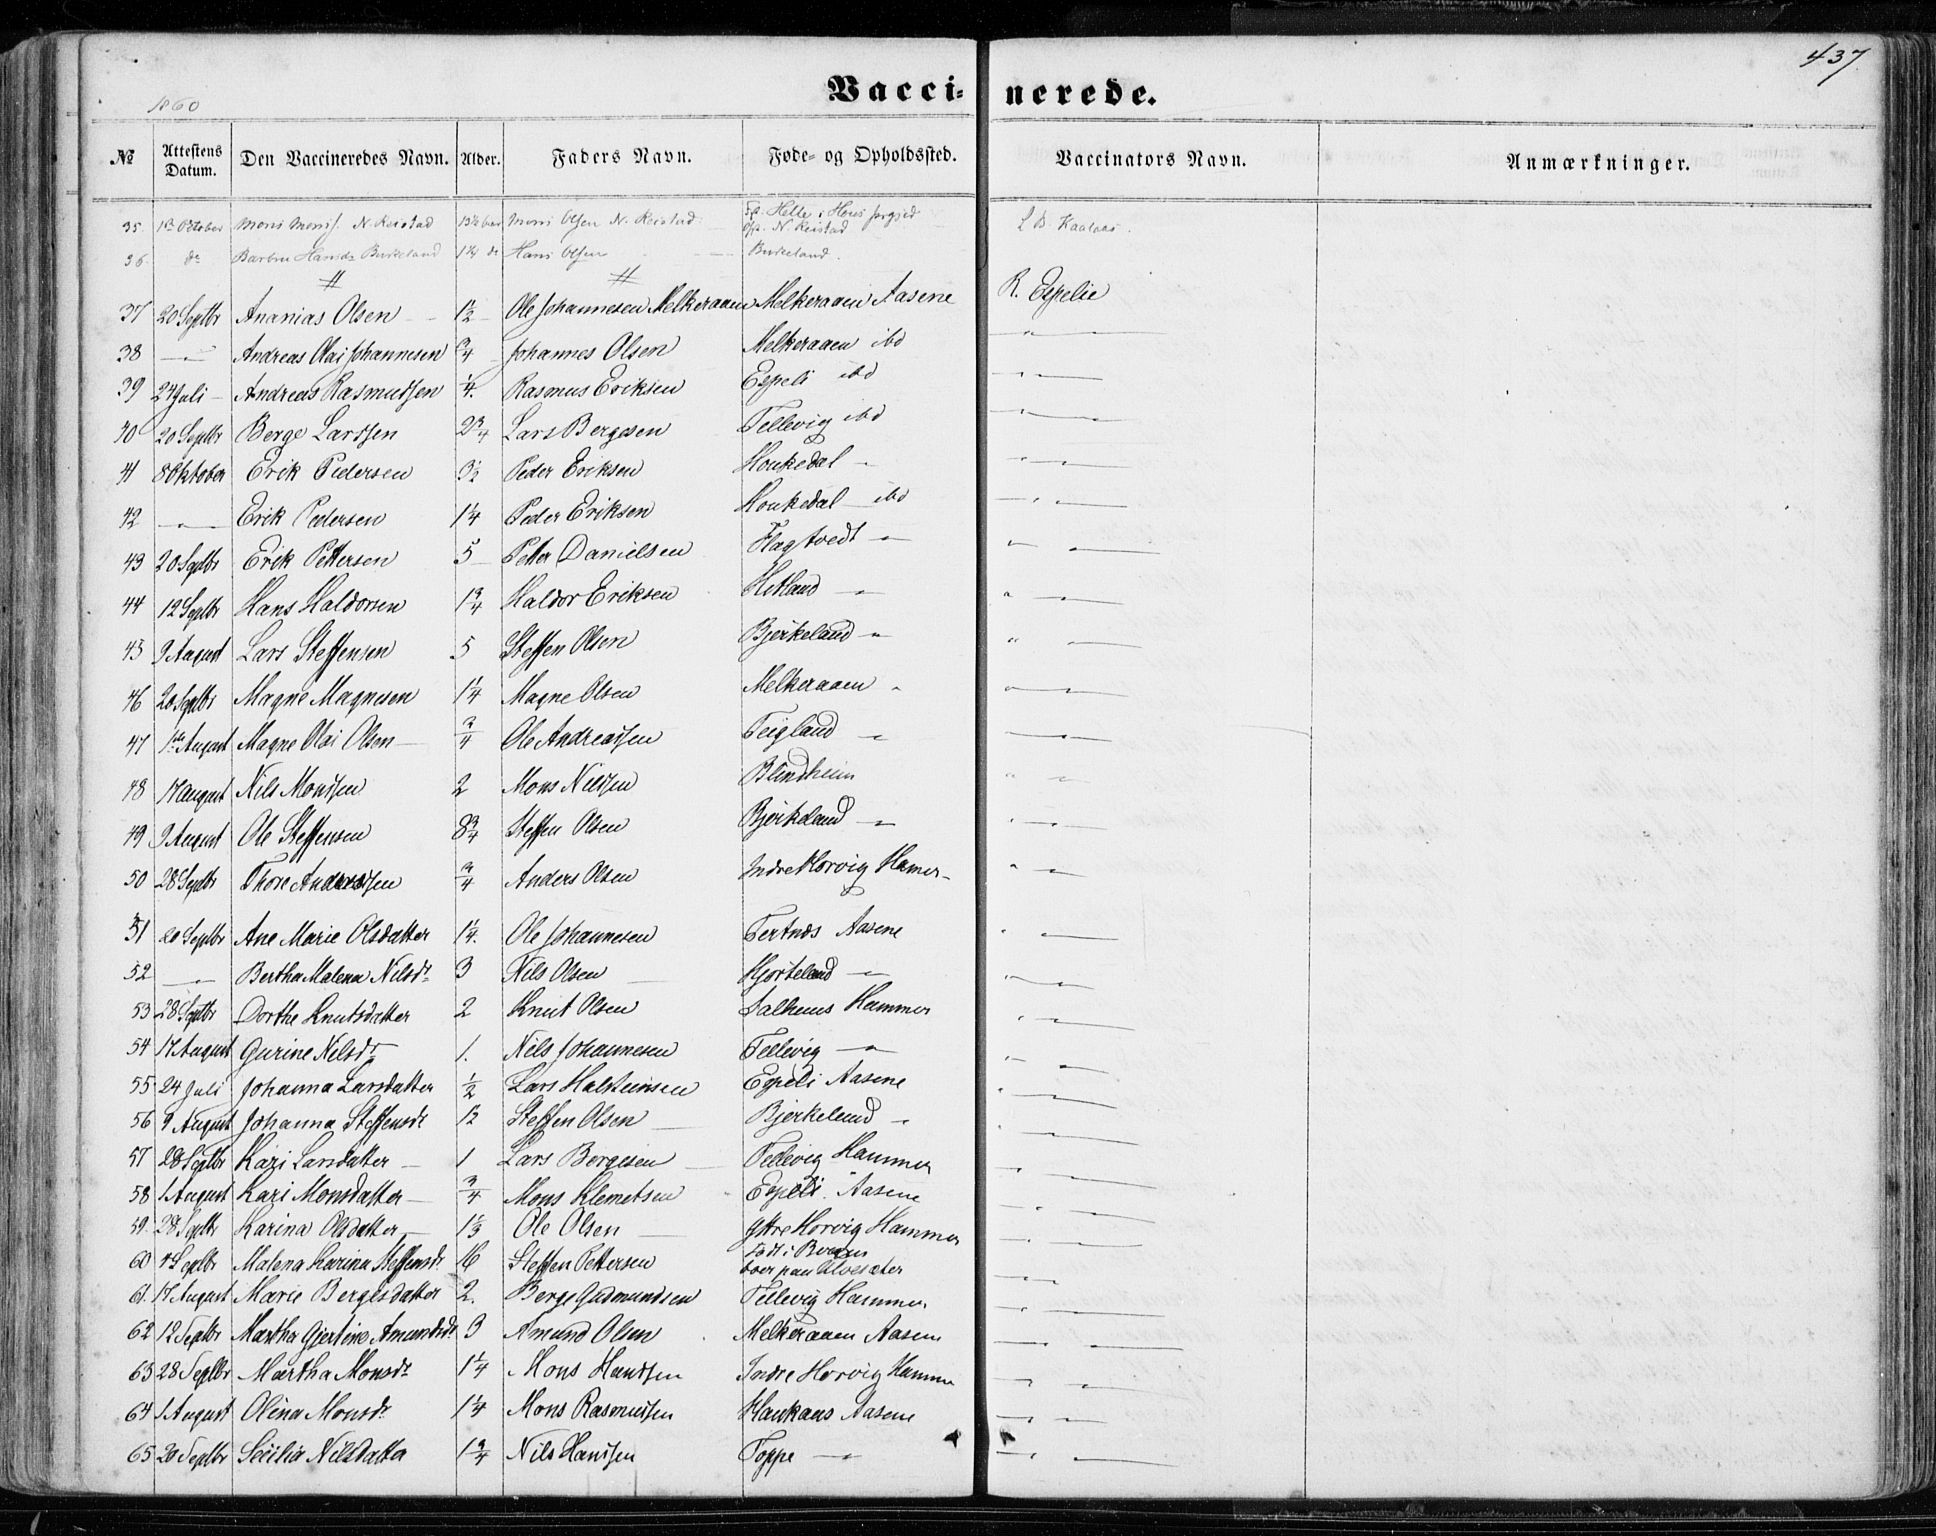 437
Vacci- nerede.
1860
№ Attestens Datum. Den Vaccineredes Navn. Alder. Faders Navn. Føde- og Opholdssted. Vaccinators Navn. Anmærkninger.
35. 1ste October Mons Mons. N. Reistad Mons Olsen N. Reistad Fød. Helle i Hous
Opp. N. Reistad L. B. Kaalaas.
36. do Barbru Hansdr Birkeland 1¼ do Hans Olsen — Birkeland.
37 20 Septbr Ananias Olsen — 1½ Ole Johannesen Melkeraaen Melkeraaen Aasene R. Espelie
38 —"— Andreas Olai Johannesen ¾ Johannes Olsen Melkeraaen ibd —"—
39 24 Juli — Andreas Rasmussen ¼. Rasmus Eriksen Espeli ibd —"—
40 20 Septbr Berge Larssen 2¾ Lars Bergesen Tellevig ibd —"—
41 8 Oktober Erik Pedersen 3½ Peder Eriksen Houkedal " —"—
42 —"— Erik Pedersen 1¼ Peder Eriksen Houkedal ibd —"—
43 20 Septbr Erik Pettersen 5 Petter Danielsen Flagtvedt —"— —"—
44 12 Septbr Hans Haldorsen 1¾ Haldor Eriksen Hitland —"— —"—
45 9 August Lars Steffensen 5 Steffen Olsen Bjørkeland —"— —"—
46 20 Septbr Magne Magnesen 1¼ Magne Olsen Melkeraaen " —"—
47 1ste August Magne Olai Olsen — ¾ Ole Andreassen Teigland —"— —"—
48 17 August Nils Monssen 2 Mons Nilssen Blindheim —"—
49 9 August Ole Steffensen 8¾ Steffen Olsen Bjørkeland —"— —"—
50 28 Septbr Thore Anderssen ¾ Anders Olsen Indre Horvig Hamer — —"—
51 20 Septbr Ane Marie Olsdatter 1¼. Ole Johannesen Tertnæs Aasene —"—
52 —"— Bertha Malena Nilsdr 3 Nils Olsen Hjorteland —"— —"—
53 28 Septbr Dorthe Knutsdatter 2 Knut Olsen Salhuus Hammer —"—
54 17 August Gurine Nilsdr 1. Nils Johannesen Tellevig —"— —"—
55 24 Juli Johanna Larsdatter ½ Lars Halsteinsen Espeli Aasene —"—
56 9 August Johanna Steffensdr 12 Steffen Olsen — Bjørkeland —"— —"—
57 28 Septbr Kari Larsdatter — 1 Lars Bergesen — Tellevig Hammer —"—
58 1 August Kari Monsdatter — ¾ Mons Klemetsen Espeli Aasene —"—
59. 28 Septbr Karina Olsdatter — 1⅓ Ole Olsen — Yttre Horvig Hammer —"—
60 4 Septbr Malena Karina Steffensdr 16 Steffen Pettersen Født i Bergen
boer paa Ulvesæter —"—
61. 17 August Marie Bergesdatter 2. Berge Gudmundsen Tellevig Hammer —"—
62 12 Septbr Martha Gjertine Amundsdr 3 Amund Olsen Melkeraaen Aasene —"—
63 28 Septbr Martha Monsdr 1¼ Mons Hanssen Indre Horvig Hamme —"—
64 1 August Olina Monsdr 1¼ Mons Rasmussen Haukaas Aasene —"—
65 20 Septbr Secilia Nilsdatter 1¾ Nils Hanssen Toppe —"— —"—